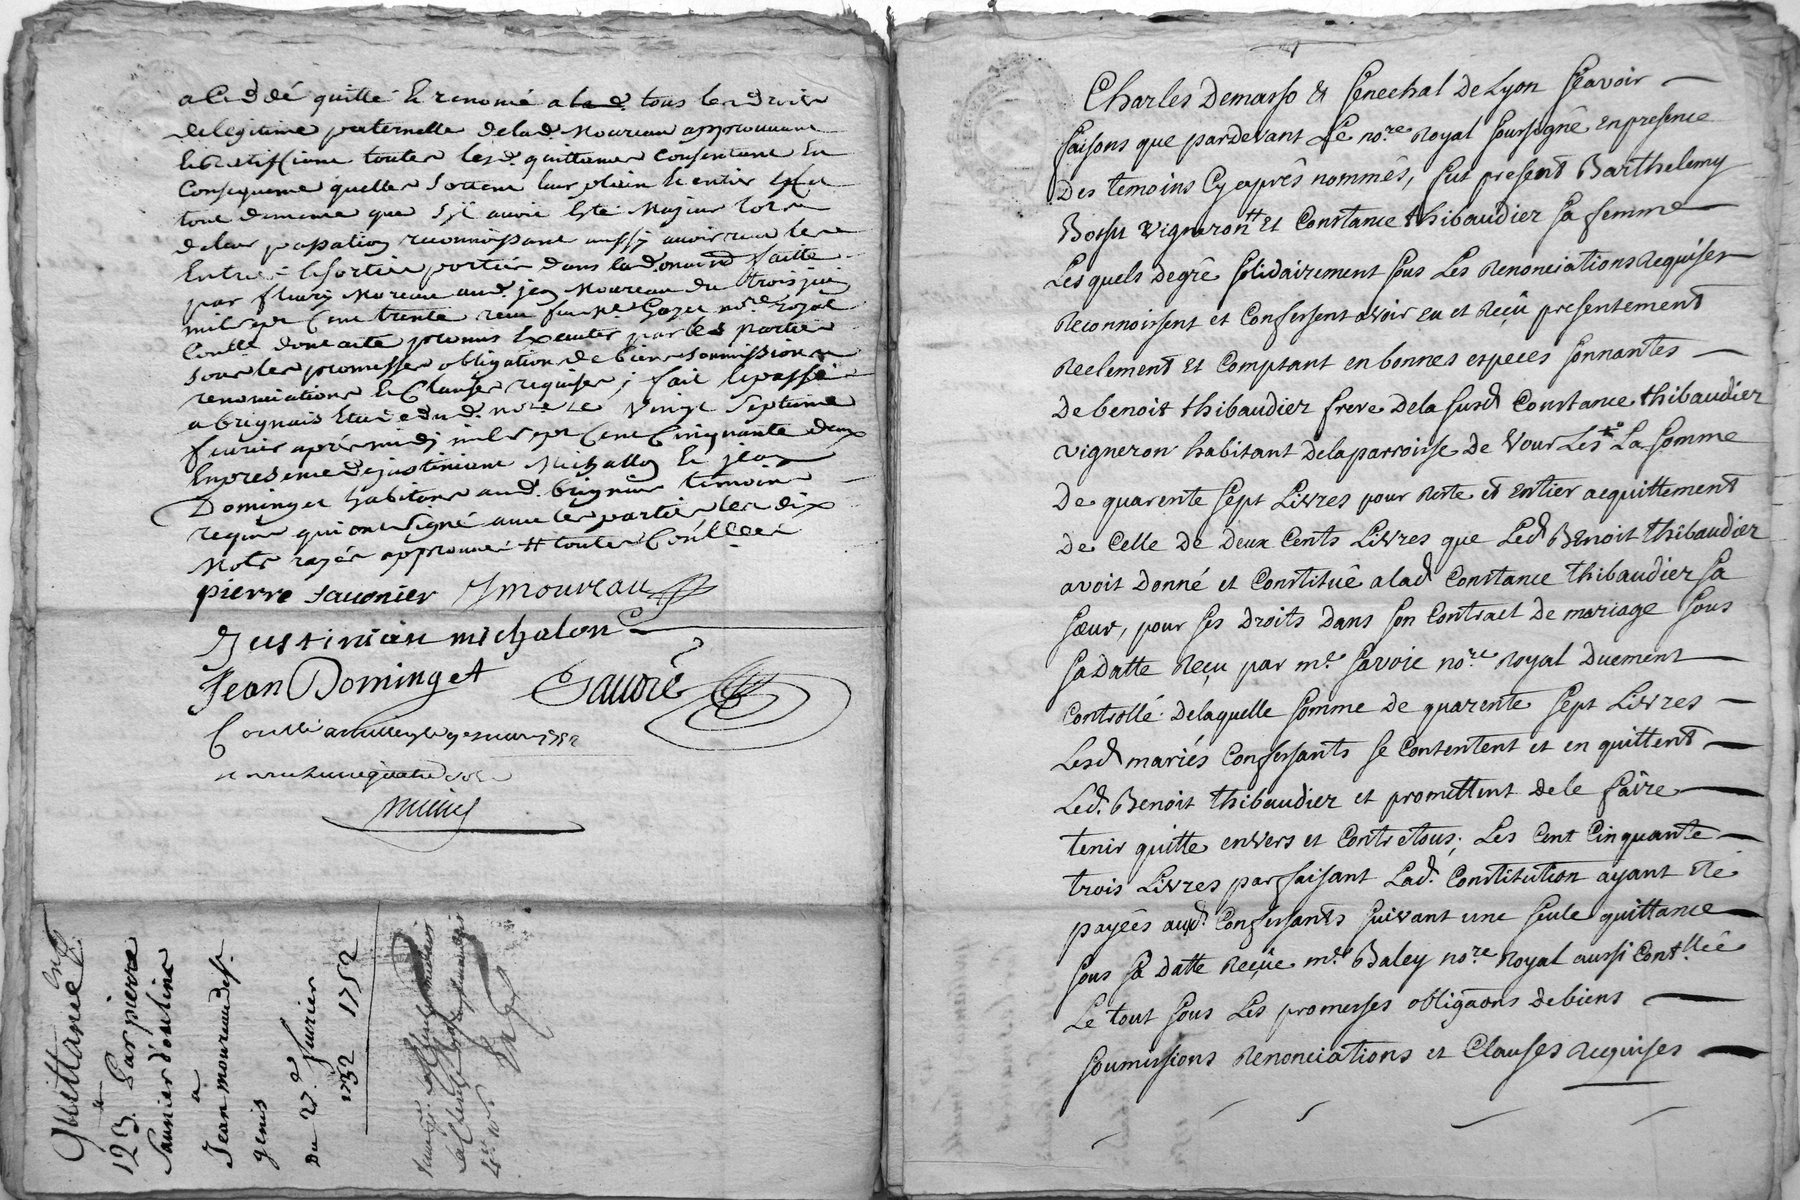 tous les droits
de legitime paternelle de lad. Moureau approuvant
et ratiffiant toutes lesd. quittances consentant en
consequence quelles sortent leur plein et entier effet
tout de meme que sil avoit été majeur lors
de leur passation reconnoissant aussy avoir
par fleury Moreau aud. jean Moureau du trois juin
mil sept cent trente Royal
dont acte promis executer par les parties
sous les promesses obligation de biens soumissions
renonciations et clauses requises ; fait et passé
a brignais Etude dud. no.re le vingt septieme
fevrier après midi mil sept cent cinquante deux
En presence de justinient Michallon et jean
Dominget habitans aud. brignais temoins
requis qui ont signé avec les parties les dix
mots rayés approuvé # toutes
pierre sauonier JMoureau
Justinian michalon
Jean Dominget Sauoie
Quittance
123. Par pierre
Saunier
a
Jean moureau de St.
genis
Du 27.e feurier
1752 1752
Charles Demasso &c Senechal De Lyon Sçavoir
faisons que pardevant Le no.re Royal soussigné en presence
Des temoins cy après nommés, fut present Barthelemy
Bossu vigneron # et Constance thibaudier sa femme
Lesquels de gré solidairement sous Les Renonciations Requises
Reconnoissent et Confessent avoir eu et Reçû presentement
Reelement et Comptant en bonnes especes sonnantes
De benoit thibaudier frere De la susd. Constance thibaudier
vigneron habitant de la parroisse de Vourles La Somme
De quarente sept Livres pour Reste et Entier acquittement
De Celle De Deux Cents Livres que Led. Benoit thibaudier
avoit Donné et Constitué a lad. Constance thibaudier sa
sœur, pour ses Droits Dans son Contract de mariage sous
sa Datte Reçu par m.e Savoie no.re Royal Duement
Controllé. De laquelle somme De quarente sept Livres
Lesd. mariés Confessants se Contentent et en quittent
Led. Benoit thibaudier et promettent de le faire
tenir quitte envers et Contre tous ; Les Cent Cinquante
trois Livres parfaisant Lad. Constitution ayant été
payées auxd. Confessants suivant une seule quittance
sous sa Datte Reçüe m.e Baley no.re Royal aussi Cont.llée
Le tout sous Les promesses obligaons de biens
soumissions Renonciations et Clauses Requises